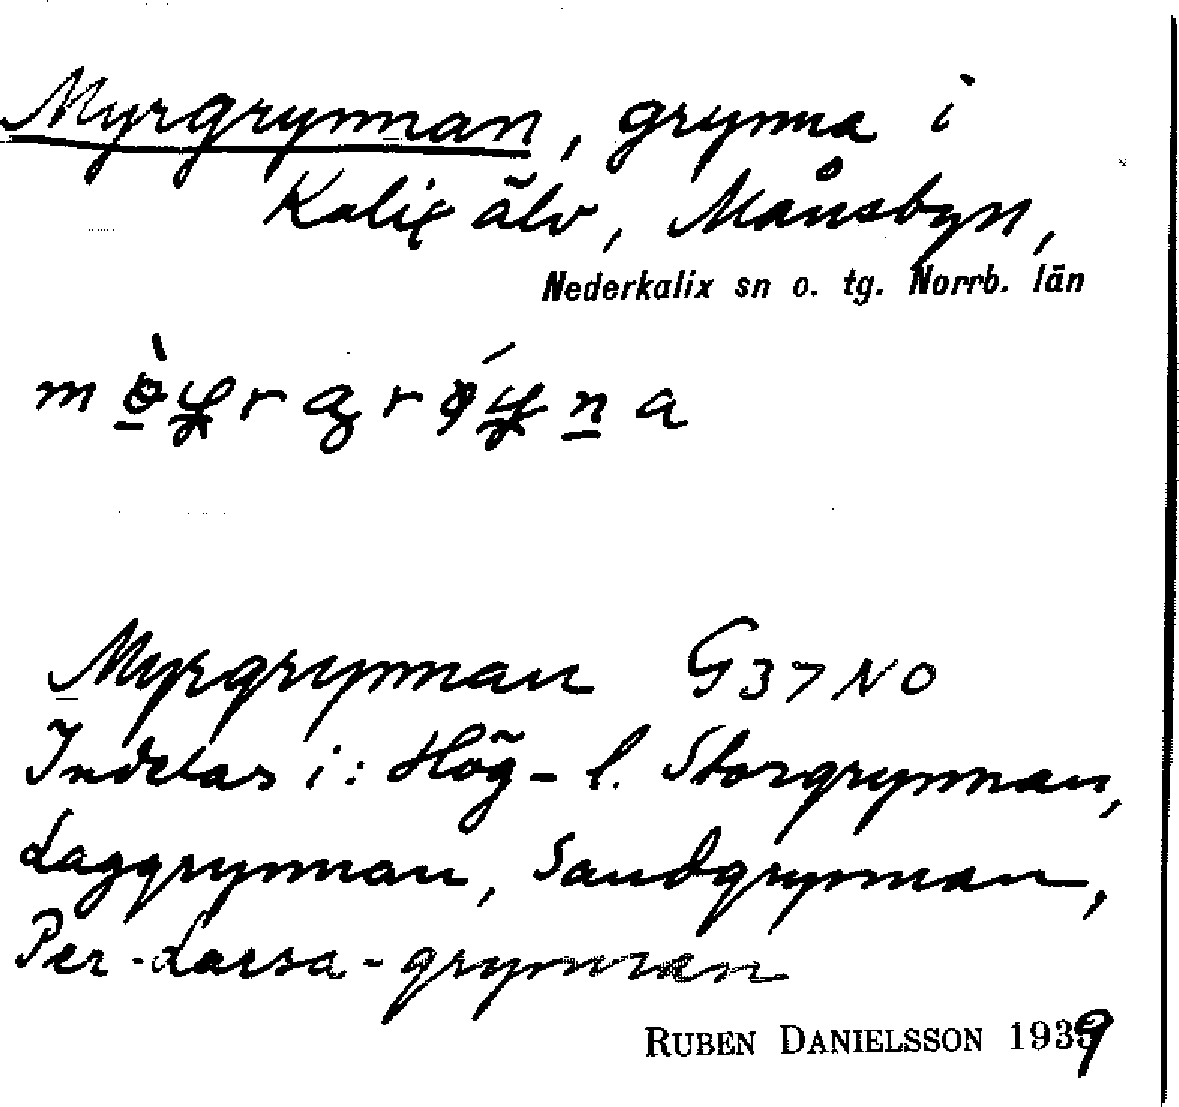 Myrgrynnan, grynna i
Kalix älv, Månsbyn,
Nederkalix sn o. tg. Norrb. län
Myrgrynnan G37NO
Indelas i: Hög- l. Storgrynnan,
Laggrynnan, Sandgrynnan,
Per-Larsa-grynnan
RUBEN DANIELSSON 1939